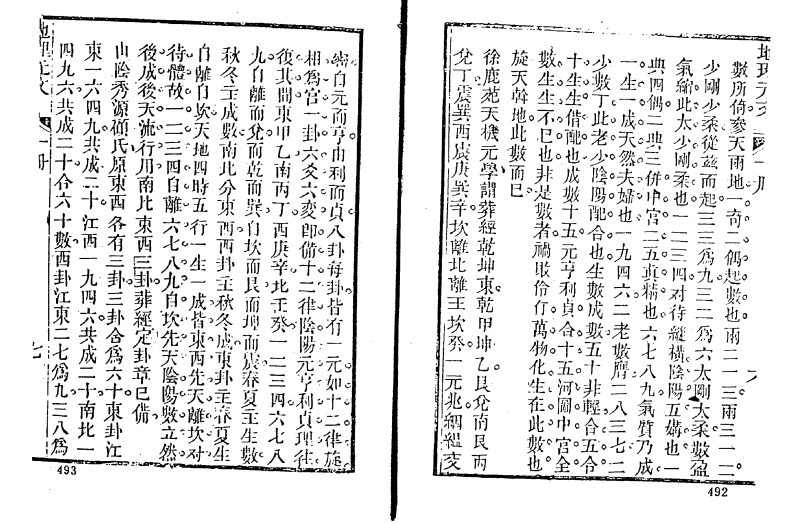 數所倚參天兩地一奇二偶起數也兩二一三兩三一二
少剛少柔從兹而起三三爲九三二爲六太剛太柔數盈
氣縮此太少剛柔也一二三四对待縱橫陰陽五媾也一
典四偶二典三併中宫二五真精也六七八九氣質乃成
一生一成天然夫婦也一九四六二老數膺二八三七二
少數丁此老少陰陽配合也生數成數五十非輕合五合
十生生借配也成數十五元亨利貞合十五河圖中宫全
數生生不已也非是數者禍敗伶仃萬物化生在此數也
旋天斡地此數而已
徐鹿苑天機元學謂葬經乾坤東乾甲坤乙艮兌南艮丙
兌丁震巽西震庚巽辛坎離北離壬坎癸一元兆絪縕交
492
媾自元而亨由利而貞八卦每卦皆有一元如十二律旋
相爲宫一卦六爻六变即備十二律陰陽元亨利貞理徃
復其間東甲乙南丙丁西庚辛北壬癸一二三四六七八
九自離而兌而乾而巽自坎而艮而坤而震春夏主生數
秋冬主成數南北分東西西卦主秋冬成東卦主春夏生
自離自坎天地四時五行一生一成皆東西先天離坎对
待體故一二三四自離六七八九自坎先天陰陽數立然
後成後天流行用南北東西三卦葬經定卦章已備
山陰秀源頠氏原東西各有三卦三卦合爲六十東卦江
東一六四九共成二十江西一九四六共成二十南北一
四九六共成二十合六十數西卦江東二七爲九三八爲
地理元文
一册
七
493